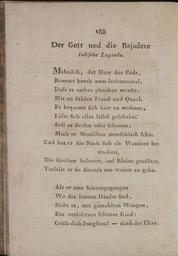 188
Der Gott und die Bajadere
Indische Legende.
Mahadöh, der Herr der Erde,
Kommt herab zum sechstenmal,
Dass er unsers gleichen werde,
Mit zu fühlen Freud und Quaal.
Er bequemt sich hier zu wohnen,
Läfst sich alles selbst geschehn,
Soll er strafen oder schonen,
Mufs er Menschen menschlich sehn.
Und hat er die Stadt sich als Wandrer be-
trachtet,
Die Grofsen belauert, auf Kleine geachtet,
Verläfst er sie Abends um weiter zu gehn.
Als er nun hinausgegangen
Wo die letzten Häuser sind,
Sieht er, mit gemahlten Wangen,
Ein verlohrnes schönes Kind:
Grüfs dich Jungfrau! — dank der Ehre.